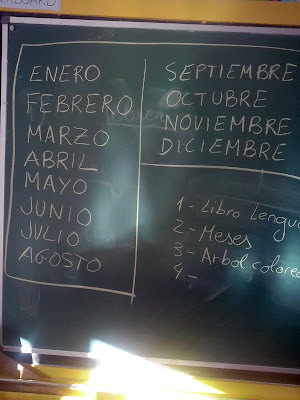 ENERO
FEBRERO
MARZO
ABRIL
MAYO
JUNIO
JULIO
AGOSTO
SEPTIEMBRE
OCTUBRE
NOVIEMBRE
DICIEMBRE
1- Libro Lengua
2- Meses
3- Arbol colored
4-